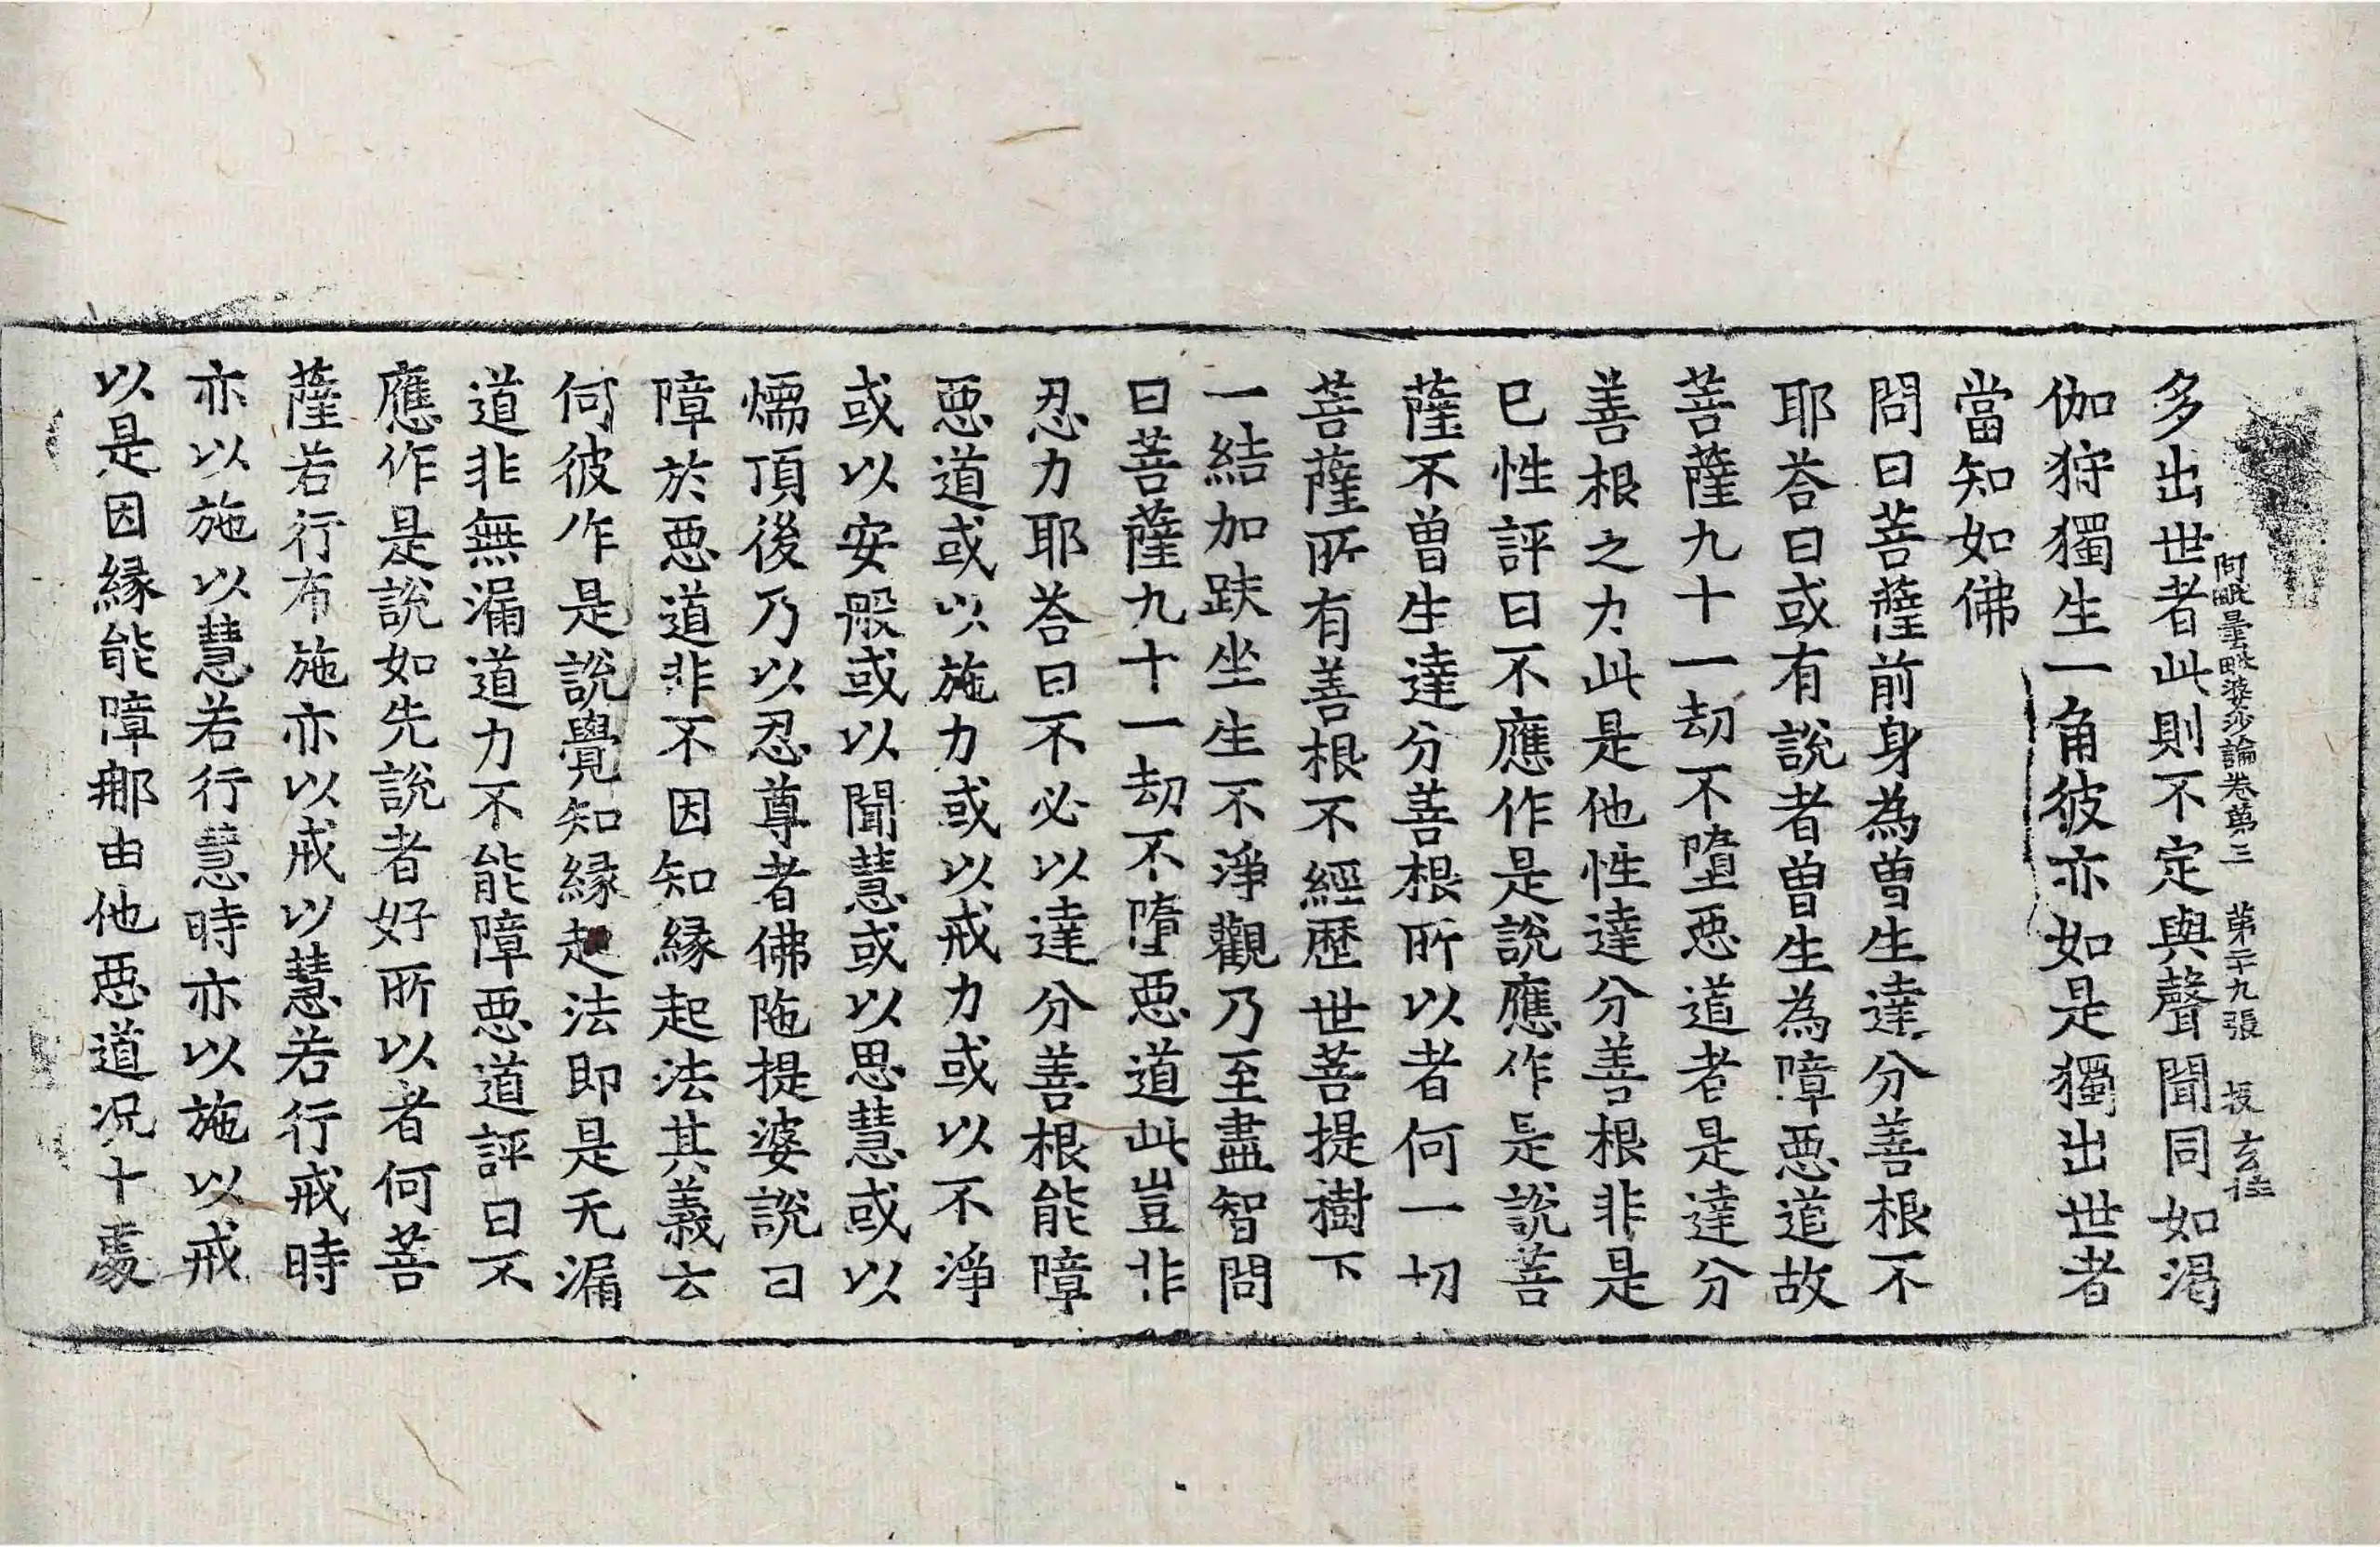 阿毗曇毗婆沙論卷第三 第二十九張 投 玄
多出世者此則不定與聲聞同如渇
伽狩獨生一角彼亦如是獨出世者
當知如佛
問曰菩薩前身為曾生達分善根不
耶荅曰或有說者曽生為障惡道故
菩薩九十一劫不墮惡道者是達分
善根之力此是他性達分善根非是
巳性評曰不應作是說應作是說菩
薩不曽生達分善根所以者何一切
菩薩所有善根不經歴世菩提樹下
一結加趺坐生不淨觀乃至盡智問
曰菩薩九十一劫不墮惡道此豈非
忍力耶荅曰不必以達分善根能障
惡道或以施力或以戒力或以不淨
或以安般或以聞慧或以思慧或以
燸頂後乃以忍尊者佛陁提婆說曰
障於惡道非不因知緣起法其義云
何彼作是說覺知緣起法即是无漏
道非無漏道力不能障惡道評曰不
應作是說如先說者好所以者何菩
薩若行布施亦以戒以慧若行戒時
亦以施以慧若行慧時亦以施以戒
以是因緣能障那由他惡道况十處